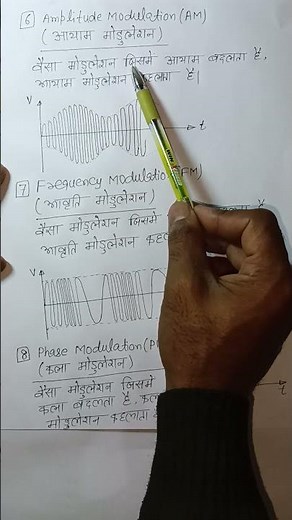 6 Amplitude Modulation (AM)
(आयाम मोडुलेशन)
वैसा मोडुलेशन जिसमे आयाम बदलता है,
आयाम मोडुलेशन कहलाता है।
V
t
7 Frequency Modulation (FM)
(आवृति मोडुलेशन)
वैसा मोडुलेशन जिसमें है
आवृति मोडुलेशन
V
8 Phase Modulation (P
(कला मोडुलेशन)
वैसा मोडुलेशन जिसमे
कला बदलता है,
मोडुलेशन कहलाता
t